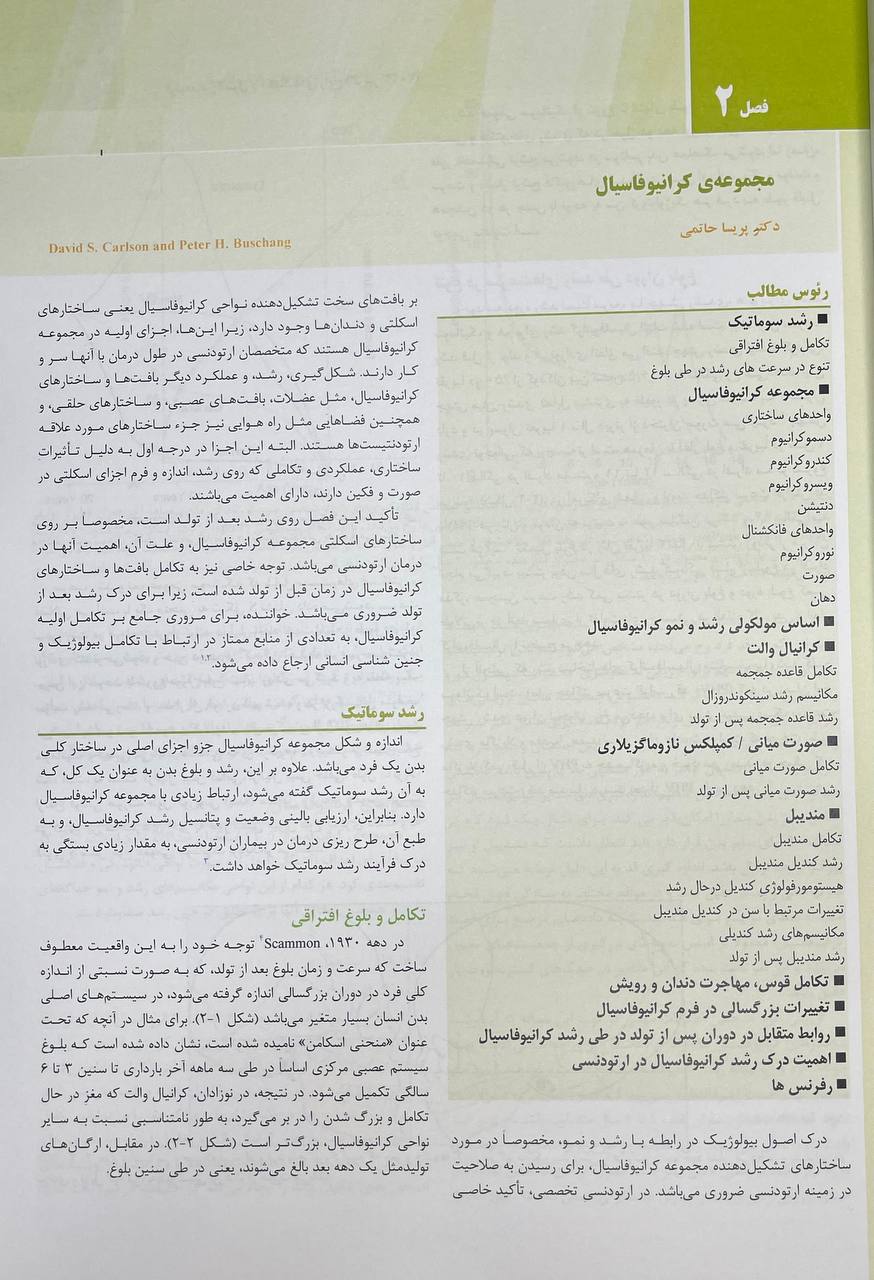 فصل ۲
مجموعه‌ی کرانیوفاسیال
دکتر پریسا حاتمی
David S. Carlson and Peter H. Buschang
رئوس مطالب
■ رشد سوماتیک
تکامل و بلوغ افتراقی
تنوع در سرعت های رشد در طی بلوغ
■ مجموعه کرانیوفاسیال
واحدهای ساختاری
دسموکرانیوم
کندروکرانیوم
ویسروکرانیوم
دنتیشن
واحدهای فانکشنال
نوروکرانیوم
صورت
دهان
■ اساس مولکولی رشد و نمو کرانیوفاسیال
■ کرانیال والت
تکامل قاعده جمجمه
مکانیسم رشد سینکوندروزال
رشد قاعده جمجمه پس از تولد
■ صورت میانی / کمپلکس نازوماگزیلاری
تکامل صورت میانی
رشد صورت میانی پس از تولد
■ مندیبل
تکامل مندیبل
رشد کندیل مندیبل
هیستومورفولوژی کندیل درحال رشد
تغییرات مرتبط با سن در کندیل مندیبل
مکانیسم‌های رشد کندیلی
رشد مندیبل پس از تولد
■ تکامل قوس، مهاجرت دندان و رویش
■ تغییرات بزرگسالی در فرم کرانیوفاسیال
■ روابط متقابل در دوران پس از تولد در طی رشد کرانیوفاسیال
■ اهمیت درک رشد کرانیوفاسیال در ارتودنسی
■ رفرنس ها
درک اصول بیولوژیک در رابطه با رشد و نمو، مخصوصاً در مورد
ساختارهای تشکیل‌دهنده مجموعه کرانیوفاسیال، برای رسیدن به صلاحیت
در زمینه ارتودنسی ضروری می‌باشد. در ارتودنسی تخصصی، تأکید خاصی
بر بافت‌های سخت تشکیل‌دهنده نواحی کرانیوفاسیال یعنی ساختارهای
اسکلتی و دندان‌ها وجود دارد، زیرا این‌ها، اجزای اولیه در مجموعه
کرانیوفاسیال هستند که متخصصان ارتودنسی در طول درمان با آنها سر و
کار دارند. شکل‌گیری، رشد، و عملکرد دیگر بافت‌ها و ساختارهای
کرانیوفاسیال، مثل عضلات، بافت‌های عصبی، و ساختارهای حلقی، و
همچنین فضاهایی مثل راه هوایی نیز جزء ساختارهای مورد علاقه
ارتودنتیست‌ها هستند. البته این اجزا در درجه اول به دلیل تأثیرات
ساختاری، عملکردی و تکاملی که روی رشد، اندازه و فرم اجزای اسکلتی در
صورت و فکین دارند، دارای اهمیت می‌باشند.
تأکید این فصل روی رشد بعد از تولد است، مخصوصاً بر روی
ساختارهای اسکلتی مجموعه کرانیوفاسیال، و علت آن، اهمیت آنها در
درمان ارتودنسی می‌باشد. توجه خاصی نیز به تکامل بافت‌ها و ساختارهای
کرانیوفاسیال در زمان قبل از تولد شده است، زیرا برای درک رشد بعد از
تولد ضروری می‌باشد. خواننده، برای مروری جامع بر تکامل اولیه
کرانیوفاسیال، به تعدادی از منابع ممتاز در ارتباط با تکامل بیولوژیک و
جنین شناسی انسانی ارجاع داده می‌شود.۱،۲
رشد سوماتیک
اندازه و شکل مجموعه کرانیوفاسیال جزو اجزای اصلی در ساختار کلی
بدن یک فرد می‌باشد. علاوه بر این، رشد و بلوغ بدن به عنوان یک کل، که
به آن رشد سوماتیک گفته می‌شود، ارتباط زیادی با مجموعه کرانیوفاسیال
دارد. بنابراین، ارزیابی بالینی وضعیت و پتانسیل رشد کرانیوفاسیال، و به
طبع آن، طرح ریزی درمان در بیماران ارتودنسی، به مقدار زیادی بستگی به
درک فرآیند رشد سوماتیک خواهد داشت.۳
تکامل و بلوغ افتراقی
در دهه ۱۹۳۰، Scammon۴ توجه خود را به این واقعیت معطوف
ساخت که سرعت و زمان بلوغ بعد از تولد، که به صورت نسبتی از اندازه
کلی فرد در دوران بزرگسالی اندازه گرفته می‌شود، در سیستم‌های اصلی
بدن انسان بسیار متغیر می‌باشد (شکل ۱-۲). برای مثال در آنچه که تحت
عنوان «منحنی اسکامن» نامیده شده است، نشان داده شده است که بلوغ
سیستم عصبی مرکزی اساساً در طی سه ماهه آخر بارداری تا سنین ۳ تا ۶
سالگی تکمیل می‌شود. در نتیجه، در نوزادان، کرانیال والت که مغز در حال
تکامل و بزرگ شدن را در بر می‌گیرد، به طور نامتناسبی نسبت به سایر
نواحی کرانیوفاسیال، بزرگ‌تر است (شکل ۲-۲). در مقابل، ارگان‌های
تولیدمثل یک دهه بعد بالغ می‌شوند، یعنی در طی سنین بلوغ.